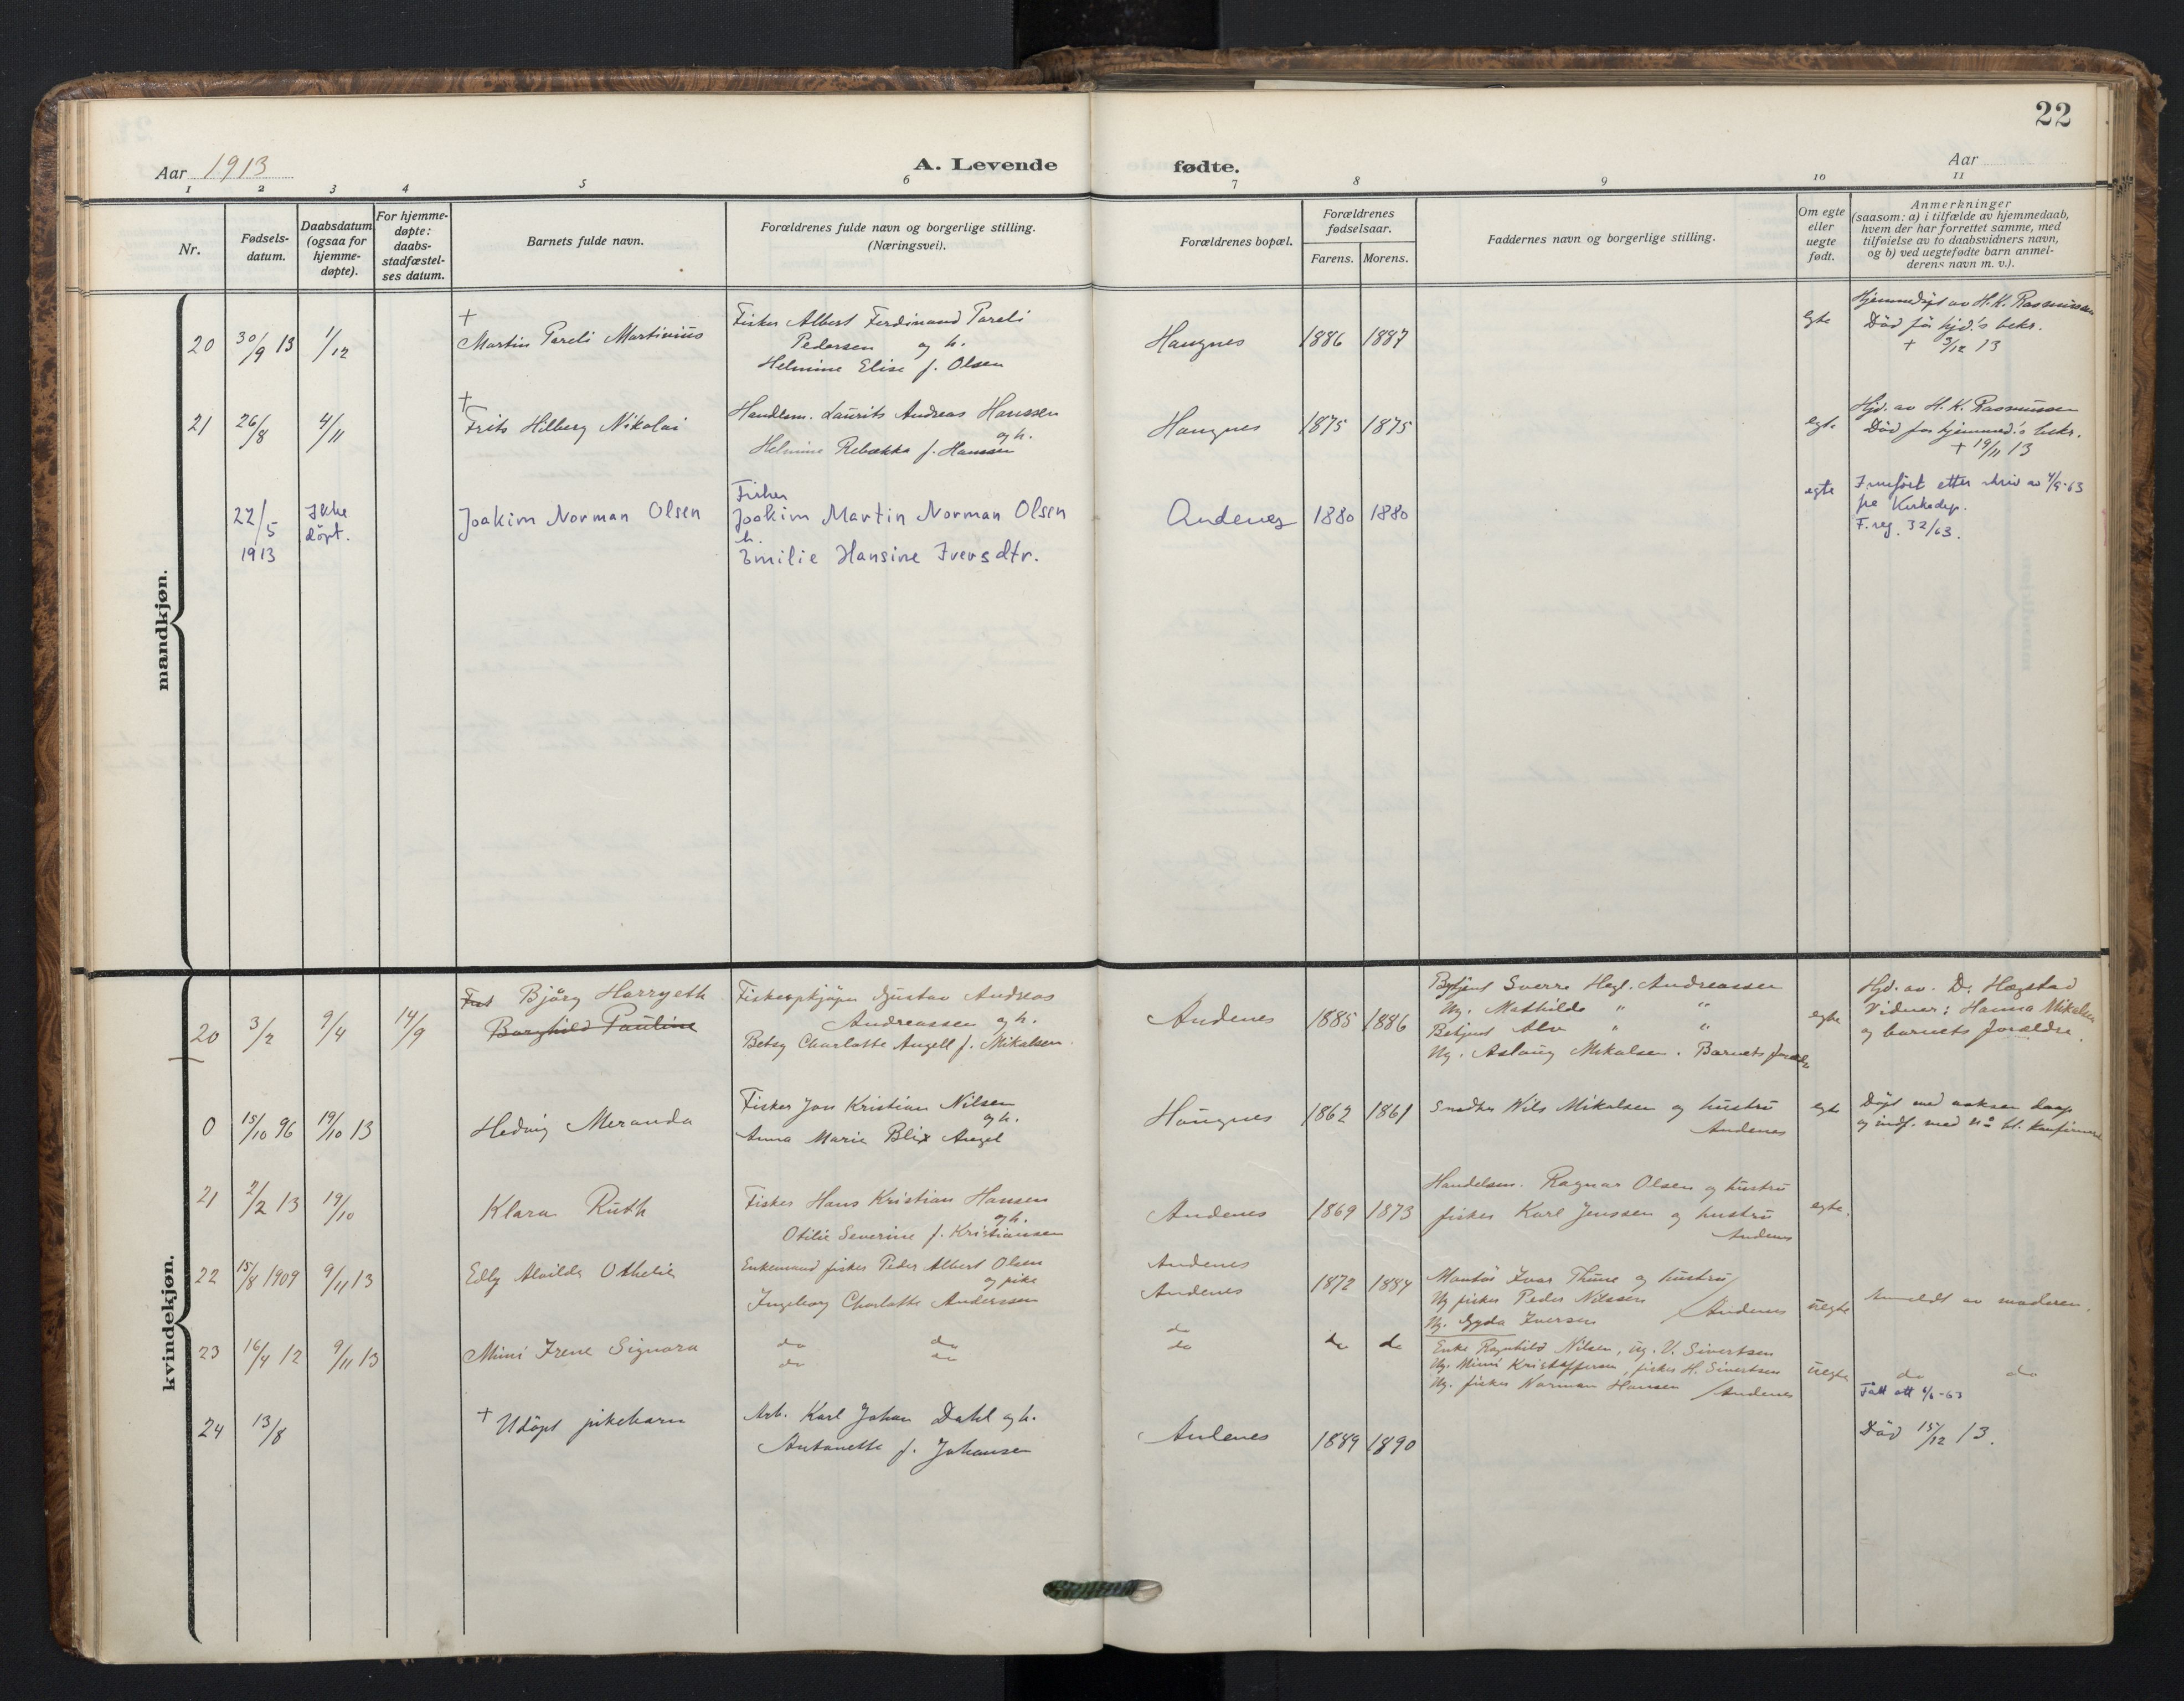 22
Aar 1913
A. Levende fødte.
Aar
1 2 3 4 5 6 7 8 9 10 11
Nr.
Fødsels-
datum.
Daabsdatum
(ogsaa for
hjemme-
døpte).
For hjemme-
døpte:
daabs-
stadfæstel-
ses datum.
Barnets fulde navn.
Forældrenes fulde navn og borgerlige stilling.
(Næringsvei).
Forældrenes bopæl.
Forældrenes
fødselsaar.
Farens. Morens.
Faddernes navn og borgerlige stilling.
Om egte
eller
uegte
født.
Anmerkninger
(saasom: a) i tilfælde av hjemmedaab,
hvem der har forrettet samme, med
tilføielse av to daabsvidners navn,
og b) ved uegtefødte barn anmel-
derens navn m. v.).
mandkjøn.
20
30/9 13
1/12
+
Martin Pareli Martinius
Fisker Albert Ferdinand Pareli
Pedersen og h.
Helmine Elise f. Olsen
Haugnes
1886 1887
egte
Hjemmedöpt av H. K. Rasmussen
Död för hjd.'s bekr.
+ 3/12 13
21
26/8
4/11
+
Frits Hilberg Nikolai
Handlsm. Laurits Andreas Hanssen
og h.
Helmine Rebekka f. Hanssen
Haugnes
1875 1875
egte
Hjd. av H. K. Rasmussen
Död för hjemmed's bekr.
+ 19/11 13
22/5
1913
Ikke
döpt.
Joakim Norman Olsen
Fisker
Joakim Martin Norman Olsen
h.
Emilie Hansine Iversdtr.
Andenes
1880 1880
egte
Innfört etter skriv av 4/5-63
fra Kirkedep.
F. reg. 32/63.
kvindekjøn.
20
3/2
9/4
14/9
Bjørg Harryeth
Borghild Pauline
Fiskeopkjöper Gustav Andreas
Andreassen og h.
Betsy Charlotte Angell f. Mikalsen.
Andenes
1885 1886
Betjent Sverre Hegl. Andreassen
Ug. Mathilde " "
Betjent Alv " "
Ug. Aslaug Mikalsen. Barnets forældre
egte
Hjd. av D. Hægstad
Vidner: Hanna Mikalsen
og barnets forældre.
0
15/10 96
19/10 13
Hedvig Meranda
Fisker Jon Kristian Nilsen
og h.
Anna Marie Blix Angel
Haugnes
1862 1861
Snedker Nils Mikalsen og hustru
Andenes
egte
Döpt med voksen daap
og indf. med No bl. konfirmerte
21
2/2 13
19/10
Klara Ruth
Fisker Hans Kristian Hansen
og h.
Otilie Severine f. Kristiansen
Andenes
1869 1873
Handelsm. Ragnar Olsen og hustru
fisker Karl Jenssen og hustru
Andenes
egte.
22
15/8 1909
9/11 13
Edly Alvilda Othelie
Enkemand fisker Peder Albert Olsen
og pike
Ingeborg Charlotte Anderssen
Andenes
Andenes
1872 1884
Montör Ivar Thune og hustru
Ug fisker Peder Nilssen
Ug. Gyda Iversen / Andenes
uegte
Anmeldt av moderen.
23
16/4 12
9/11 13
Mimi Irene Signora
do do
do do
do
do
do do
Enke Ragnhild Nilsen, ug. V. Sivertsen
Ug. Mimi Kristoffersen, fisker H. Sivertsen
Ug. fisker Norman Hansen / Andenes
uegte
do do
Fått att 4/6-63
24
13/8
+ Udöpt pikebarn
Arb. Karl Johan Dahl og h.
Antonette f. Johansen
Andenes
1889 1890
Död 15/12 13.